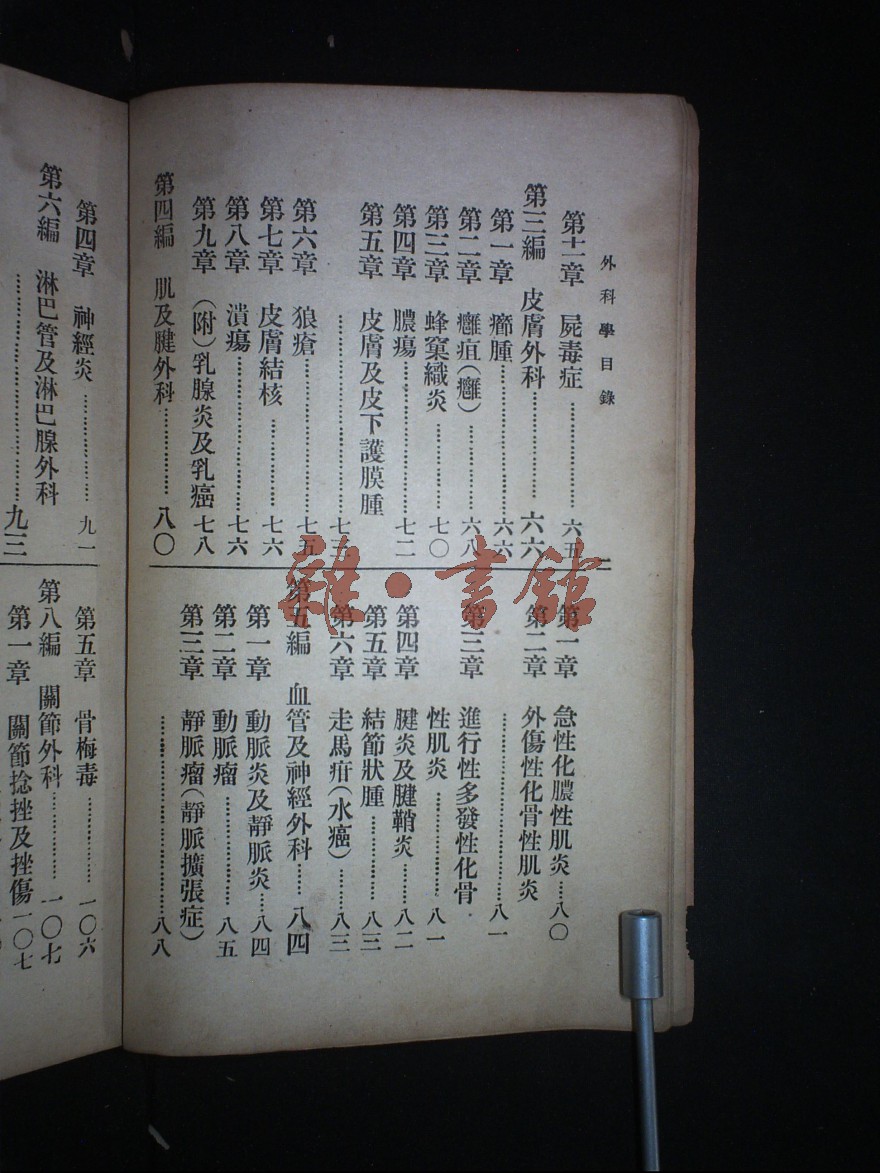 外科學目錄
第十二章 屍毒症……六五
第三編 皮膚外科……六六
第一章 癤腫……六六
第二章 癰疽(癰)……六八
第三章 蜂窠織炎……七〇
第四章 膿瘍……七二
第五章 皮膚及皮下護膜腫
……七三
第六章 狼瘡……七五
第七章 皮膚結核……七六
第八章 潰瘍……七六
第九章 (附)乳腺炎及乳癌七八
第四編 肌及腱外科……八〇
第一章 急性化膿性肌炎……八〇
第二章 外傷性化骨性肌炎
……八一
第三章 進行性多發性化骨
性肌炎……八一
第四章 腱炎及腱鞘炎……八二
第五章 結節狀腫……八三
第六章 走馬疳(水癌)……八三
第五編 血管及神經外科……八四
第一章 動脈炎及靜脈炎……八四
第二章 動脈瘤……八五
第三章 靜脈瘤(靜脈擴張症)
……八八
第四章 神經炎……九一
第六編 淋巴管及淋巴腺外科
……九三
第五章 骨梅毒……一〇六
第八編 關節外科……一〇七
第一章 關節捻挫及挫傷一〇七
雜·書館